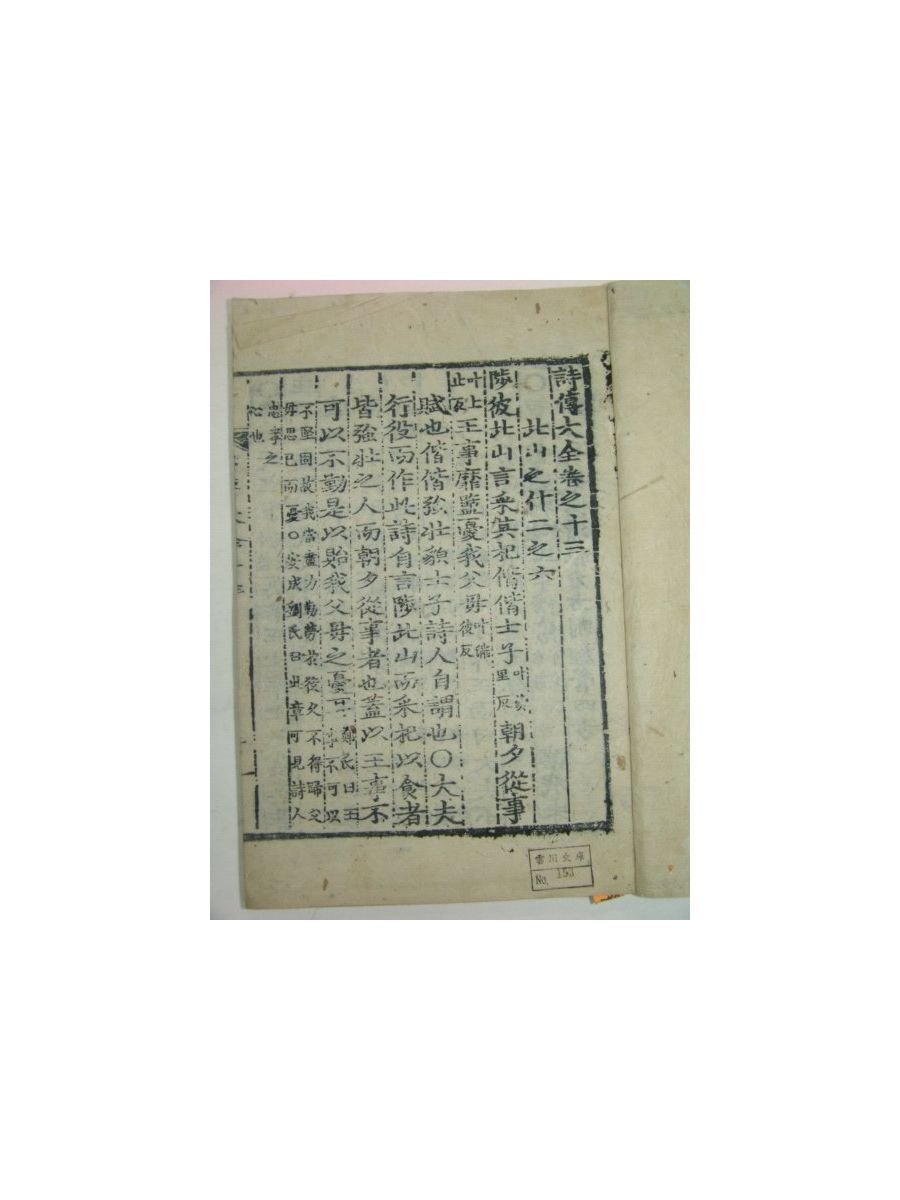 詩傳大全卷之十三
北山之什二之六
陟彼北山言采其杞偕偕士子叶奬里反朝夕從事
叶上止反王事靡盬憂我父母叶滿彼反
賦也偕偕强壯貌士子詩人自謂也〇大夫
行役而作此詩自言陟北山而采杞以食者
皆强壯之人而朝夕從事者也蓋以王事不
可以不勤是以貽我父母之憂耳鄭氏曰王事不可以
不堅固故我當盡力勤勞於役久不得歸父
母思己而憂〇安成劉氏曰此章可見詩人
忠孝之
心也
雪川文庫
No. 153